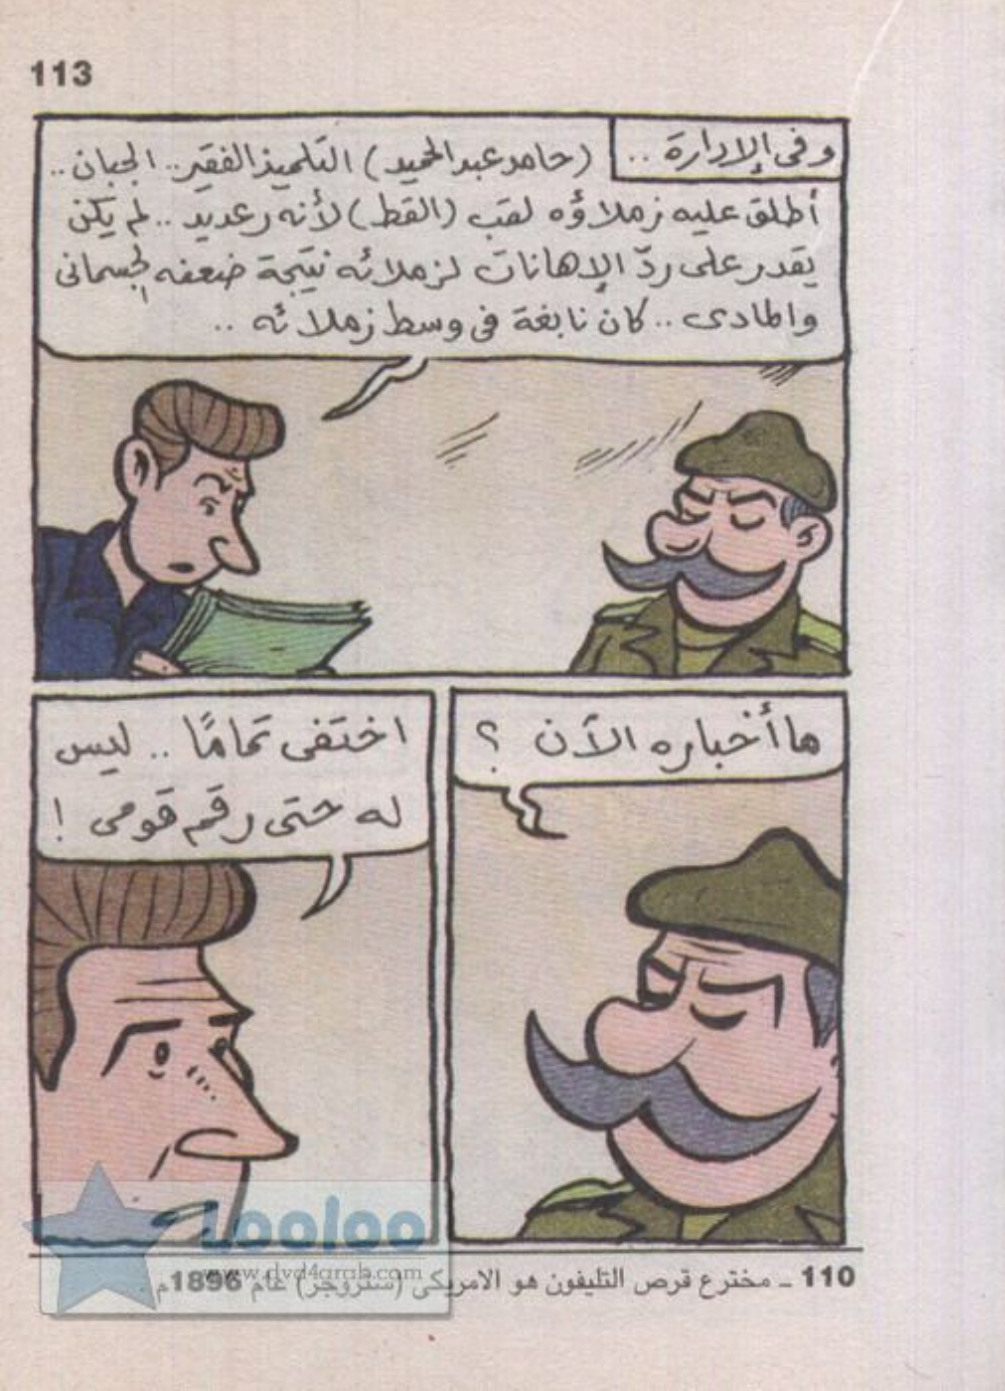 113
وفى الإدارة ..
(حامد عبد الحميد) التلميذ الفقير.. الجبان ..
أطلق عليه زملاؤه لقب (القط) لأنه رعديد .. لم يكن
يقدر على ردّ الإهانات لزملائه نتيجة ضعفه الجسمانى
والمادى .. كان نابغة فى وسط زملائه ..
ما أخباره الآن ؟
اختفى تمامًا .. ليس
له حتى رقم قومى !
Looloo
www.dvd4arab.com
110 ـ مخترع قرص التليفون هو الامريكى (ستروجر) عام 1896م .